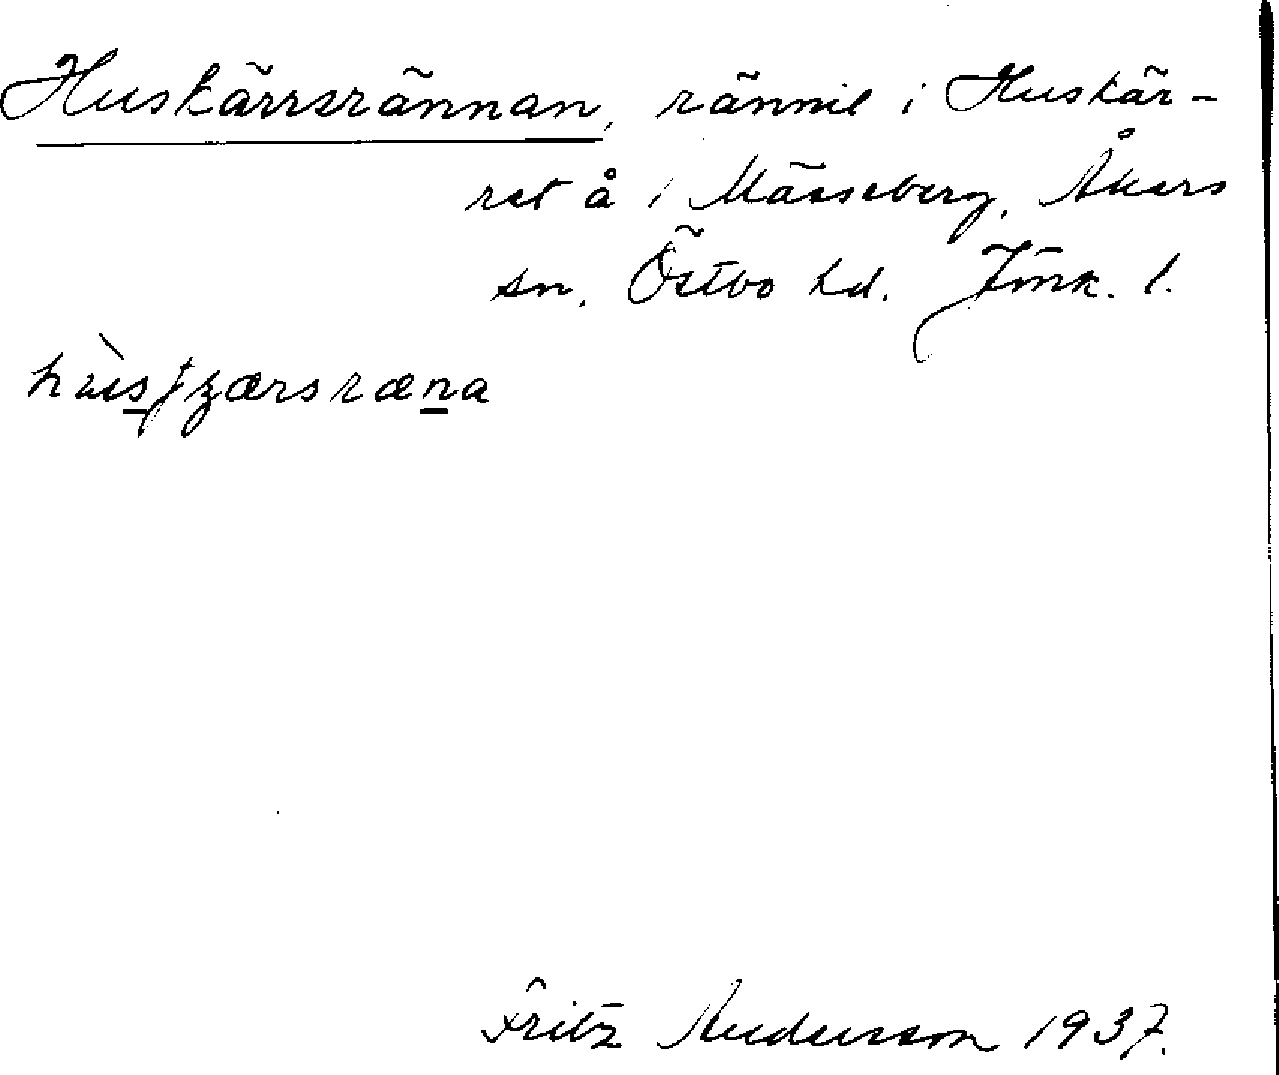 Huskärrsrännan, rännil i Huskär-
ret å / Mässeberg, Åkers
sn, Östbo hd. Jönk. l.
Fritz Andersson 1937.